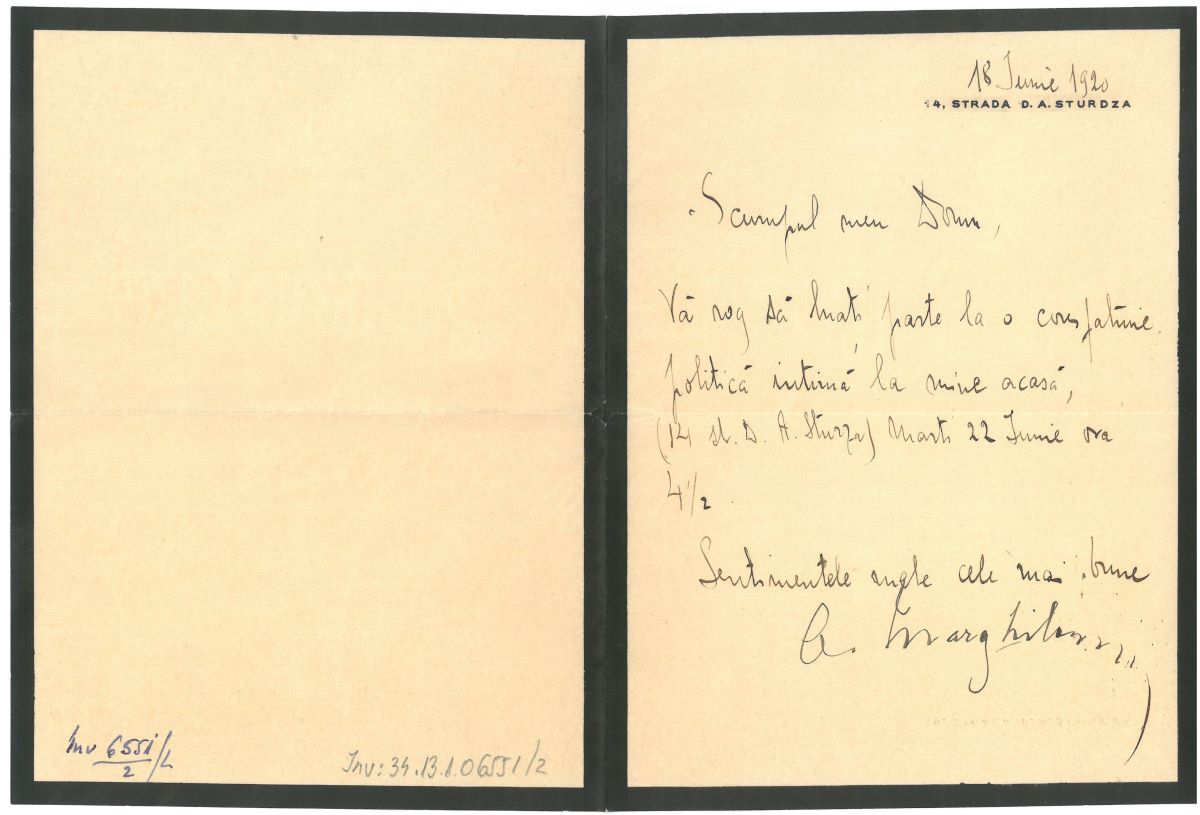 Inv 6551/L
2
Inv: 34.13.1.06551/2
18 Iunie 1920
14, STRADA D. A. STURDZA
Scumpul meu Domn,
Vă rog să luați parte la o consfatuire
politică intimă la mine acasă,
(14 st. D. A. Sturza) Marti 22 Iunie ora
4 1/2.
Sentimentele mele cele mai bune
A. Marghiloman